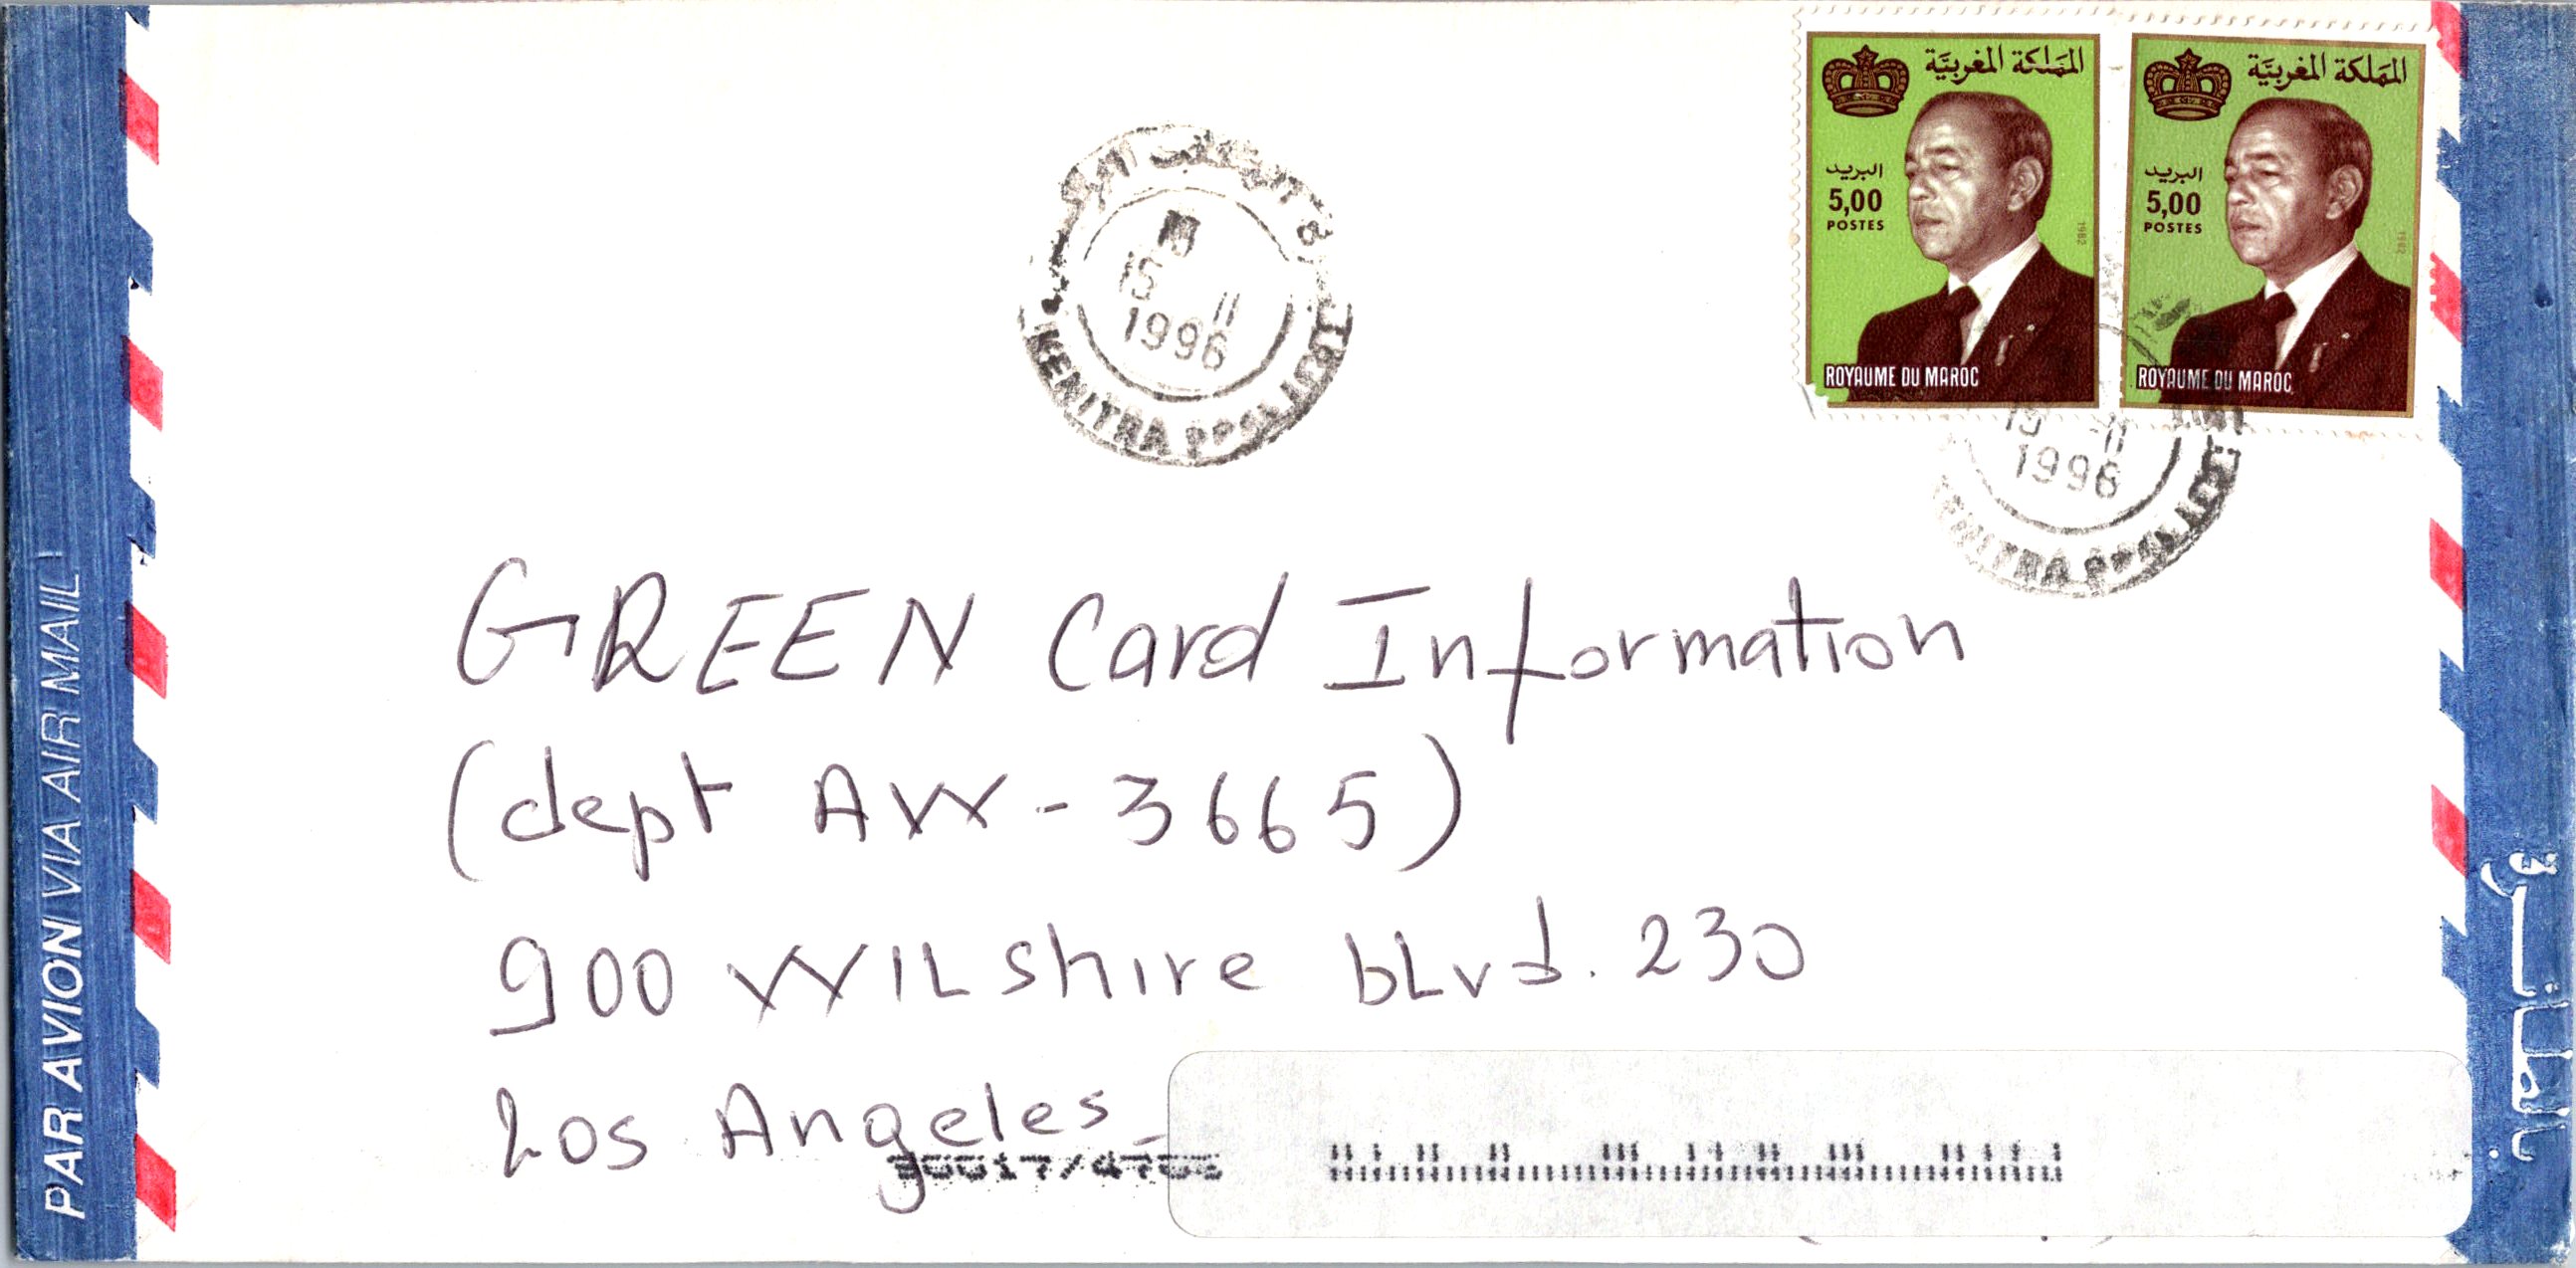 PAR AVION/VIA AIR MAIL
المملكة المغربية
البريد
5,00
POSTES
1982
ROYAUME DU MAROC
المملكة المغربية
البريد
5,00
POSTES
1982
ROYAUME DU MAROC
15 11
1996
KENITRA PPAL
15 11
1996
KENITRA PPAL
GREEN Card Information
(dept AW-3665)
900 WILshire bLvd. 230
Los Angeles_
90017/4706